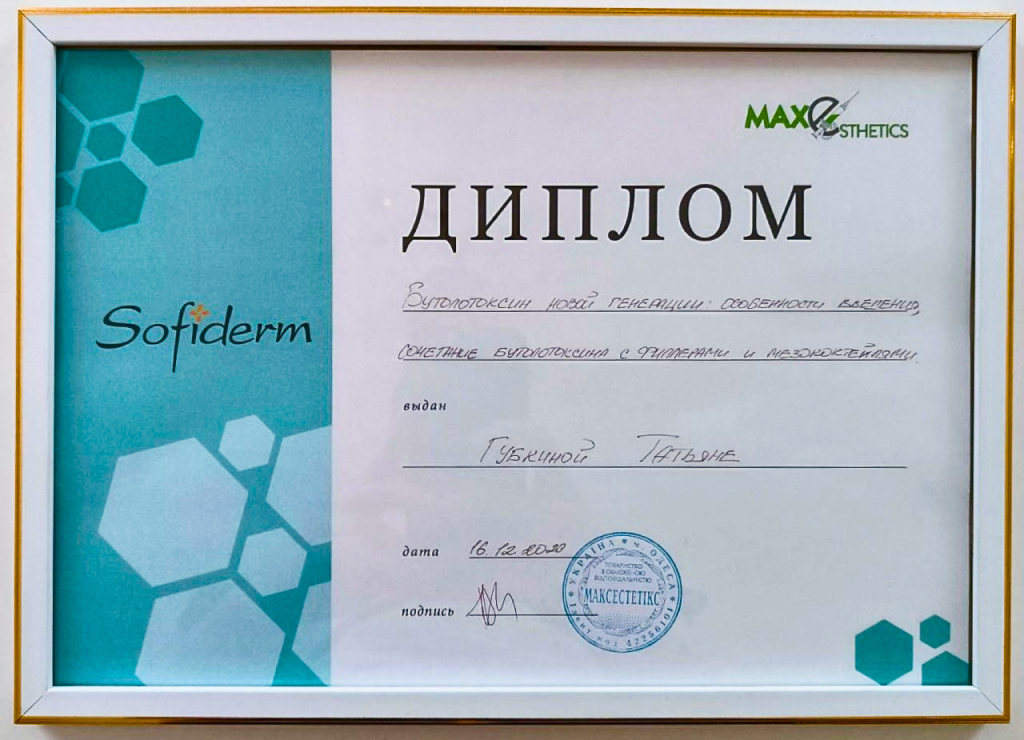 MAXeSTHETICS
ДИПЛОМ
Sofiderm
Бутолотоксин новой генерации: особенности введения,
сочетание бутолотоксина с филлерами и мезококтейлями.
выдан
Губкиной Татьяне
дата 16.12.2020
подпись
УКРАЇНА * м. ОДЕСА *
ТОВАРИСТВО
З ОБМЕЖЕНОЮ
ВІДПОВІДАЛЬНІСТЮ
МАКСЕСТЕТІКС
Ідент. код 42256101